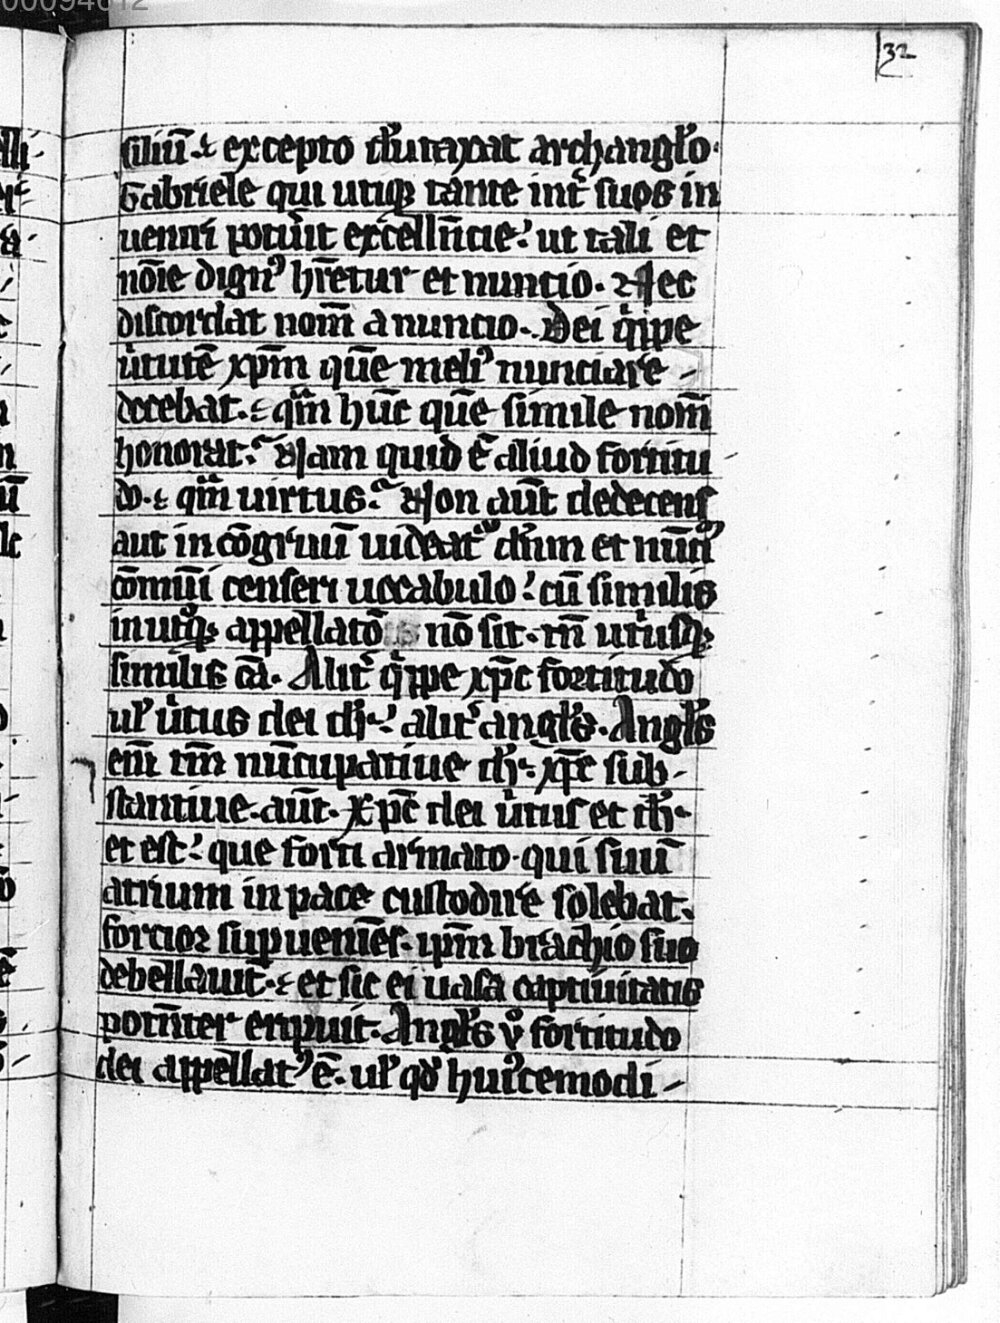 32
siliū· ⁊ excepto dūtaxat archanglo·
Gabriele qui utiq; tante int̄ suos in
ueniri potuit excellēcie· ut tali et
noīe dign᷒ hr̄etur et nuncio· Nec
discordat nom̄ a nuncio· Dei q̇ppe
u̇tutē xp̄m quē meli᷒ nunciare
decebat· ⁊ q̄m hūc quē simile nom̄
honorat· Nam quid ē aliud fortitu
do· ⁊ q̄m uirtus· Non aūt dedecens
aut incōgruū uideat᷒ dn̄m et nūciū
cōmuni censeri uocabulo· cū similis
in utq̇q; appellatō nō sit· tn̄ utriusq;
similis cā· Alit̄ q̇ppe xp̄c fortitudo
ul̄ u̇tus dei dr̄· alit̄ angl̄s· Angl̄s
eni̅ tn̄ nūcupatiue dr̄· xp̄c sub-
stantiue· aūt· Xp̄c dei u̇tus et dr̄·
et est· que forti armato· qui suū
atrium in pace custodire solebat·
forcior supueniēs· ip̄m brachio suo
debellauit· ⁊ et sic ei uasa captiuitatis
potn̄ter eripuit· Angl̄s v̊ fortitudo
dei appellat᷒ ē· ul̄ qd̄ hui᷒cemodi-